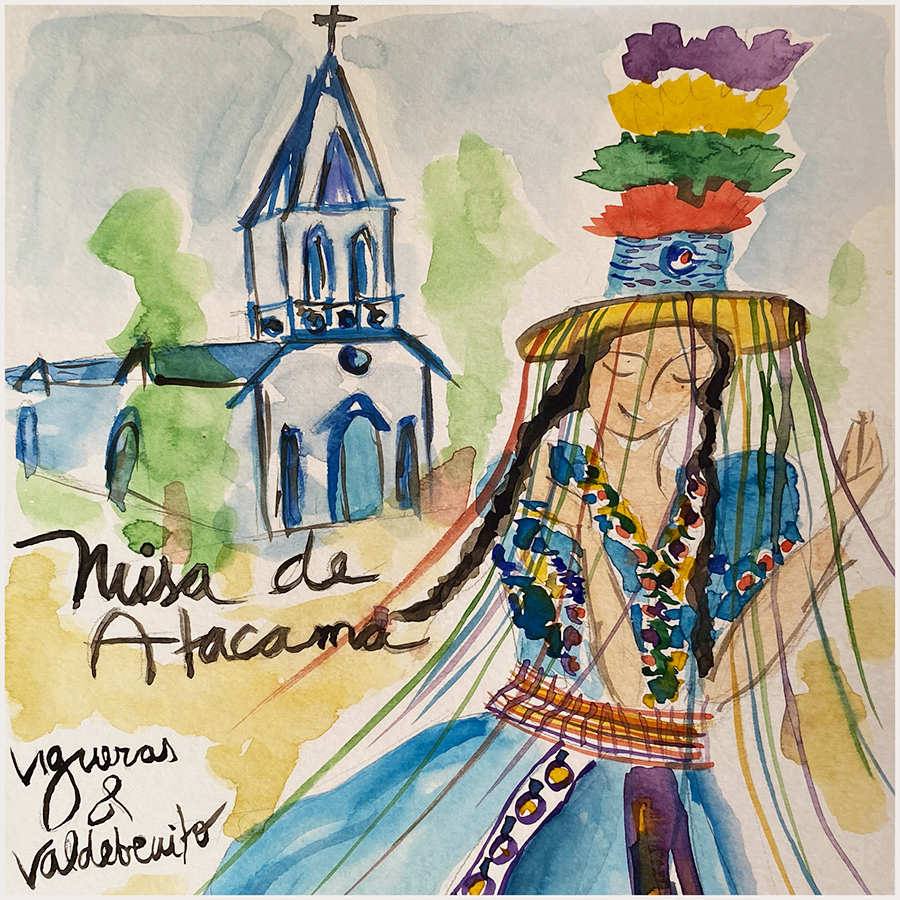 Misa de
Atacama
Vigueras
&
Valdebenito